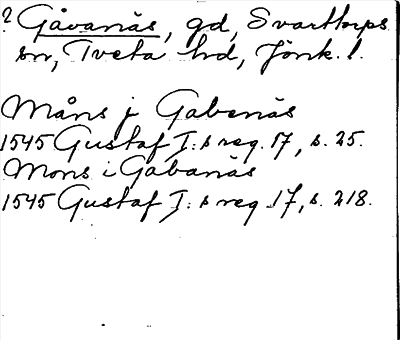 ? Gåvanäs, gd, Svarttorps
sn, Tveta hd, Jönk. l.
Måns j Gabenäs
1545 Gustaf I:s reg. 17, s. 25.
Mons i Gabanäs
1545 Gustaf I:s reg. 17, s. 218.